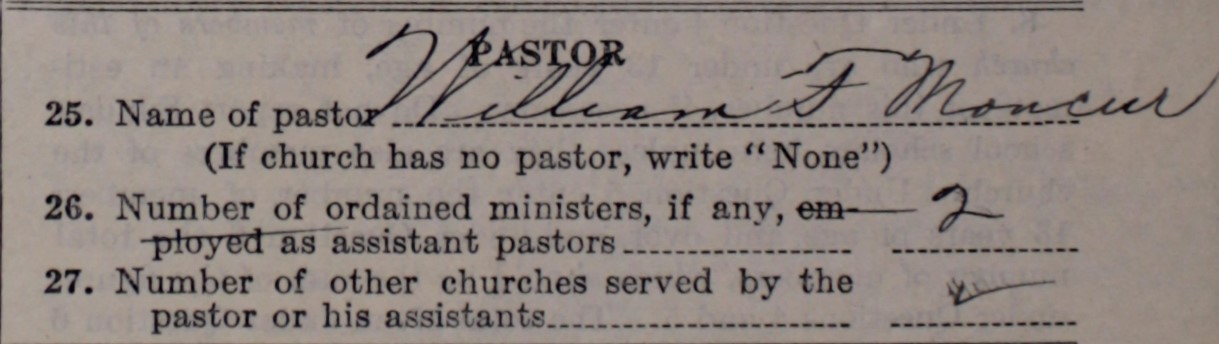 PASTOR
25. Name of pastor William F Moncur
(If church has no pastor, write "None")
26. Number of ordained ministers, if any, em- 2
ployed as assistant pastors
27. Number of other churches served by the
pastor or his assistants